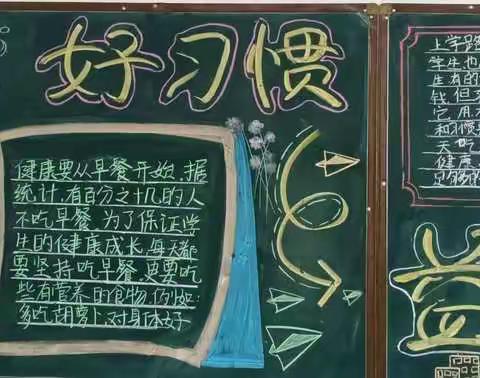 好习惯
健康要从早餐开始,据
统计,有百分之十几的人
不吃早餐,为了保证学
生的健康成长,每天都
要坚持吃早餐,更要吃
些有营养的食物,例如:
多吃胡萝卜,对身体好
上学路
学生也
生有的
钱,但
它,用
和习惯
天吃
健康
足够的
益